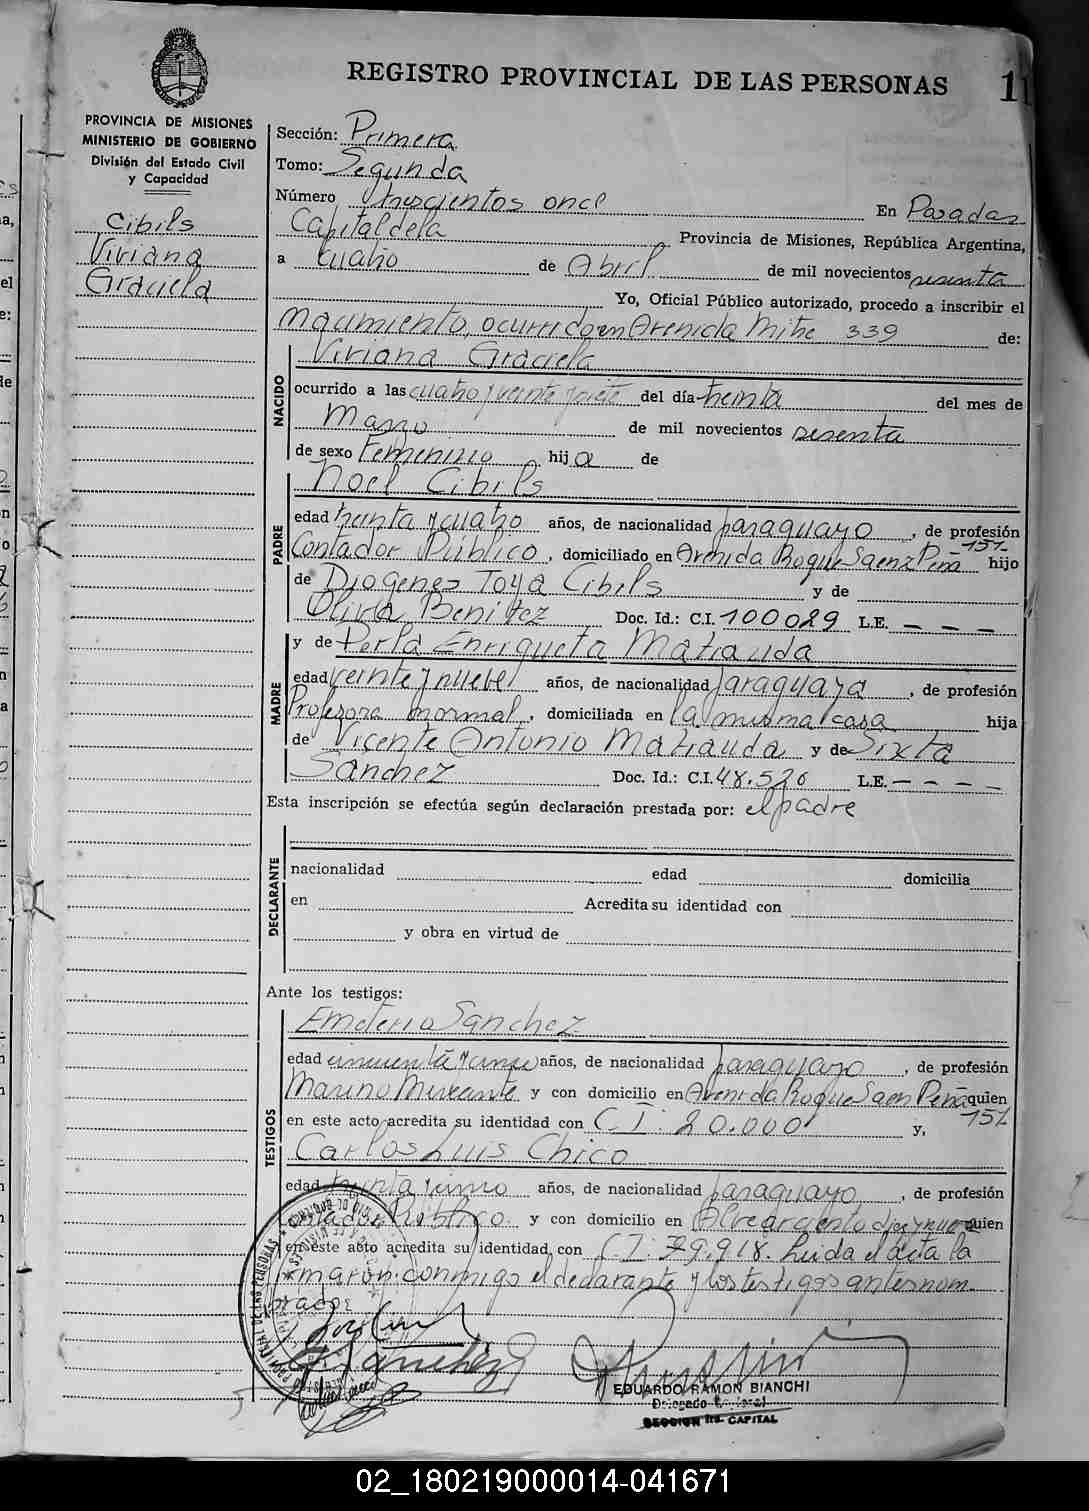 REGISTRO PROVINCIAL DE LAS PERSONAS 11
PROVINCIA DE MISIONES
MINISTERIO DE GOBIERNO
División del Estado Civil
y Capacidad
Cibils
Viviana
Graciela
Sección: Primera
Tomo: Segunda
Número trescientos once En Posadas
Capital de la Provincia de Misiones, República Argentina,
a cuatro de Abril de mil novecientos sesenta
Yo, Oficial Público autorizado, procedo a inscribir el
Nacimiento, ocurrido en Avenida Mitre 339 de:
NACIDO
Viviana Graciela
ocurrido a las cuatro y veinte y siete del día treinta del mes de
Marzo de mil novecientos sesenta
de sexo Femenino hija de
PADRE
Noel Cibils
edad treinta y cuatro años, de nacionalidad paraguayo, de profesión
Contador Público, domiciliado en Avenida Roque Saenz Peña 151 hijo
de Diogenes Toya Cibils y de
Oliva Benitez Doc. Id.: C.I. 100029 L.E. – – –
MADRE
y de Perla Enriqueta Matiauda
edad veinte y nueve años, de nacionalidad paraguaya, de profesión
Profesora normal, domiciliada en la misma casa hija
de Vicente Antonio Matiauda y de Sixta
Sánchez Doc. Id.: C.I. 48.520 L.E. – – – –
Esta inscripción se efectúa según declaración prestada por: el padre
DECLARANTE
nacionalidad edad domicilia
en Acredita su identidad con
y obra en virtud de
Ante los testigos:
TESTIGOS
Emeterio Sanchez
edad cincuenta y cinco años, de nacionalidad paraguayo, de profesión
Marino Mercante y con domicilio en Avenida Roque Saen Peña 151 quien
en este acto acredita su identidad con C.I. 20.000 y,
Carlos Luis Chico
edad treinta y cinco años, de nacionalidad paraguayo, de profesión
Contador Público y con domicilio en quien
en este acto acredita su identidad con C.I. 79.918. Leida el acta la
firmaron conmigo el declarante y los testigos antes nom
brados
EDUARDO RAMON BIANCHI
Delegado
SECCION 1ra. CAPITAL
02_180219000014-041671